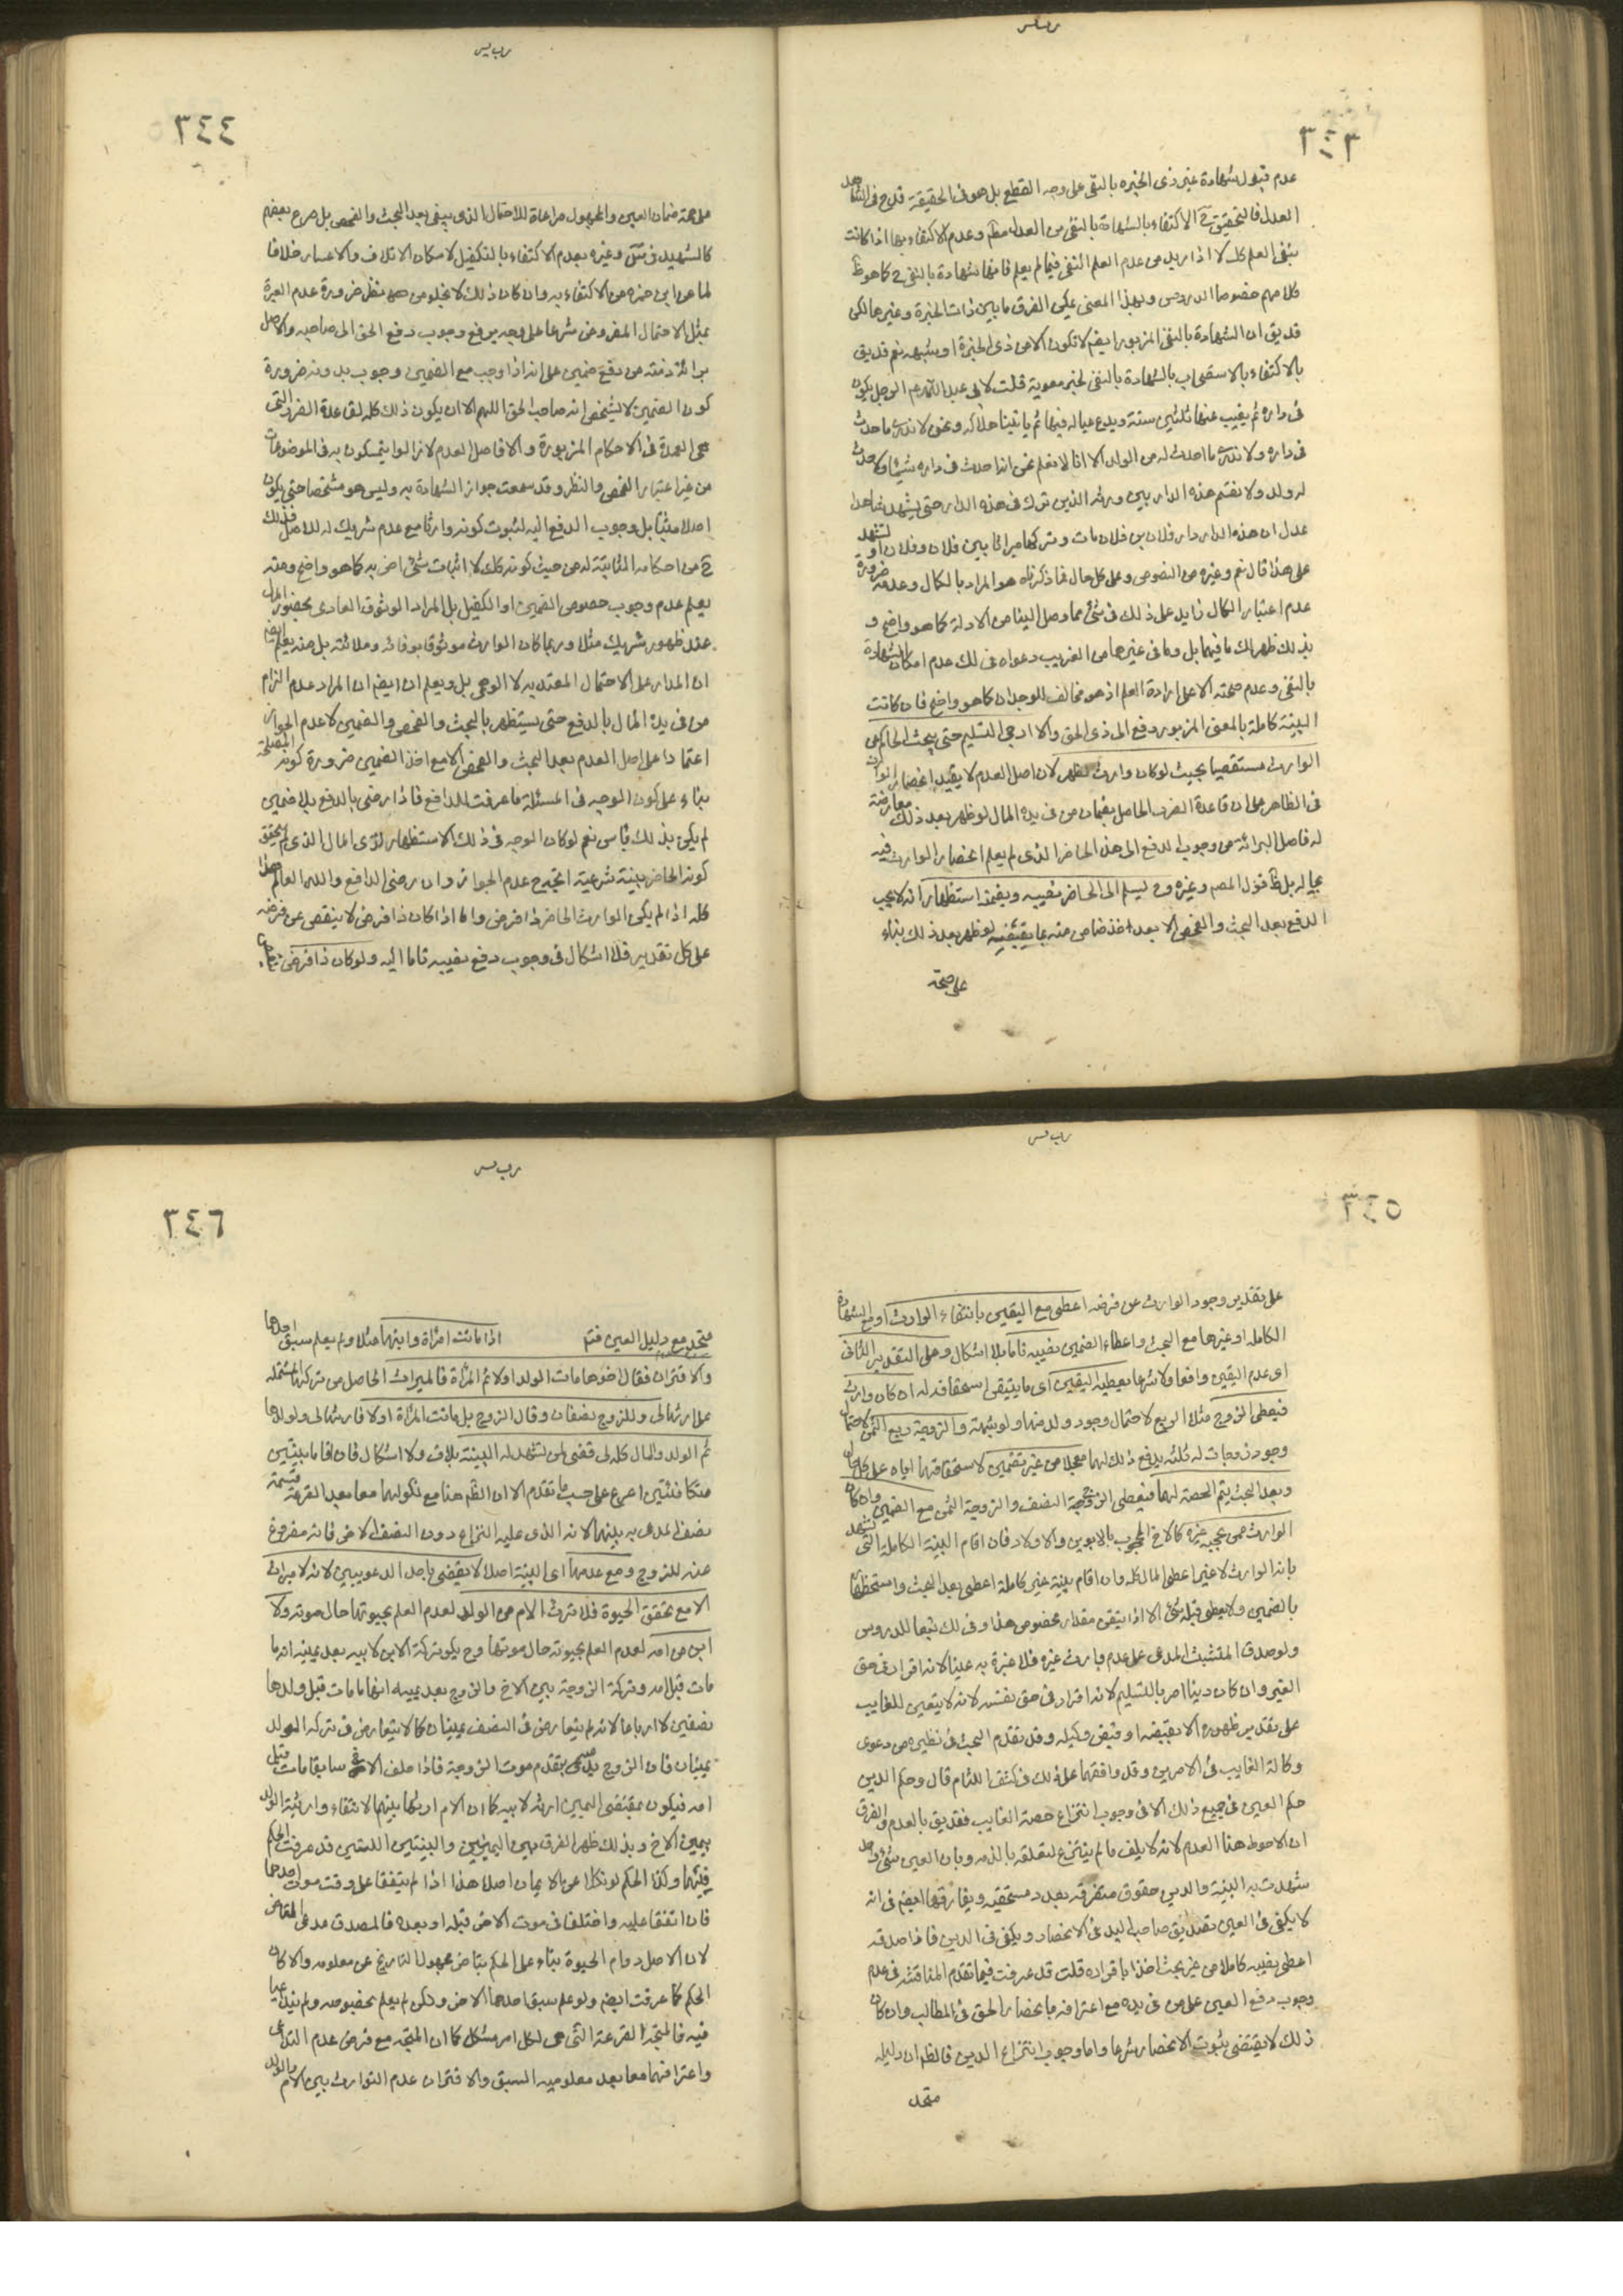 ٣٤٣
عدم قبول شهادة غير ذى الخبره بالنفى على وجه القطع بل هو فى الحقيقة قدح فى الشاهد
العدل فالتحقيق ح الاكتفاء بالشهادة بالنفى من العدل مطم وعدم الاكتفاء بها اذا كانت
بنفى العلم كك لا اذا اريد من عدم العلم النفى فيما لم يعلم فانها شهادة بالنفى ح كما هو ظ
كلامهم خصوصا الدروس وبهذا المعنى يمكن الفرق ما بين ذات الخبرة وغيرها لكن
قد يق ان الشهادة بالنفى المزبور ايضم لا تكون الا من ذى الخبرة او شبهه نعم قد يق
بالاكتفاء بالاستصحاب بالشهادة بالنفى لخبر معوية قلت لابى عبد الله عم الرجل يكون
فى داره ثم يغيب عنها ثلثين سنة ويدع عياله فيها ثم ياتينا هلاكه ونحن لا ندرى ما احدث
فى داره ولا ندرى ما احدث له من الولد الا انا لا نعلم نحن انه احدث فى داره شيئا ولا حدث
له ولد ولا تقسم هذه الدار بين ورثه الذين ترك فى هذه الدار حتى يشهد شاهدا
عدل ان هذه الدار دار فلان بن فلان مات وتركها ميراثا بين فلان وفلان او نشهد
على هذا قال نعم وغيره من النصوص وعلى كل حال فما ذكرناه هو المراد بالكمال وعدمه ضرورة
عدم اعتبار الكمال زايد على ذلك فى شئ مما وصل الينا من الادلة كما هو واضح و
بذلك ظهر لك ما فيهما بل وما فى غيرها من الغريب دعواه فى لك عدم امكان الشهادة
بالنفى وعدم صحته الا على ارادة العلم اذ هو مخالف للوجدان كما هو واضح فان كانت
البينة كاملة بالمعنى المزبور دفع الى ذى الحق والا ارجى التسليم حتى يبحث الحاكم عن
الوارث مستقصيا بحيث لو كان وارث لظهر لان اصل العدم لا يقيد انحصار الوارث
فى الظاهر على ان قاعدة الضرر الحاصل بضمان من فى يده المال لو ظهر بعد ذلك معارضة
له فاصل البرائه من وجوب الدفع الى هذا الحاضر الذى لم يعلم انحصار الوارث فيه
بحاله بل ظ قول المصم وغيره وح يسلم الى الحاضر نصيبه ويضمنه استظهارا انه لا يجب
الدفع بعد البحث والفحص الا بعد اخذ ضامن منه بما يقبضه لو ظهر بعد ذلك بناء
على صحة
٣٤٤
على صحة ضمان العين والمجهول مراعاة للاحتمال الذى يبقى بعد البحث والفحص بل صرح بعضهم
كالشهيد فى وغيره بعدم الاكتفاء بالتكفيل لامكان الاتلاف والاعسار خلافا
لما عن ابن حمزه من الاكتفاء به وان كان ذلك لا يخلو من نظر ضرورة عدم العبرة
بمثل الاحتمال المفروض شرعا على وجه يرفع وجوب دفع الحق الى صاحبه والاصل
برائة ذمته من دفع ضمين على انه اذا وجب مع الضمين وجوب بدونه ضرورة
كون الضمين لا يشخص انه صاحب الحق اللهم الا ان يكون ذلك كله لقاعدة الضرر التى
هى العمدة فى الاحكام المزبورة والا فاصل العدم لا زالوا يتمسكون به فى الموضوعات
من غير اعتبار الفحص والنظر وقد سمعت جواز الشهادة به وليس هو مشخصا حتى يكون
اصلا مثبتا بل وجوب الدفع اليه لثبوت كونه وارثا مع عدم شريك له للاصل فذلك
ح من احكامه الثابتة له من حيث كونه كك لا اثبات شئ اخر به كما هو واضح ومنه
يعلم عدم وجوب خصوص الضمين او الكفيل بل المراد الوثوق العادى بحضور المال
عند ظهور شريك مثلا وربما كان الوارث موثوقا بوفائه وملائته بل منه يعلم ايضم
ان المدار على الاحتمال المعتد به لا الوهمى بل ويعلم ان ايضم ان المراد عدم الزام
من فى يده المال بالدفع حتى يستظهر بالبحث والفحص والضمين لا عدم الجواز
اعتمادا على اصل العدم بعد البحث والفحص الا مع اخذ الضمين ضرورة كونه لمصلحة
بناء على كون الوجه فى المسئلة ما عرفت للدافع فاذا رضى بالدفع بلا ضمين
لم يكن بذلك باس نعم لو كان الوجه فى ذلك الاستظهار لذى المال الذى لم يتحقق
كونه الحاضر ببينة شرعية اتجه ح عدم الجواز وان رضى الدافع والله العالم هذا
كله اذا لم يكن الوارث الحاضر ذا فرض واما اذا كان ذا فرض لا ينقص عن فرضه
على كل تقدير فلا اشكال فى وجوب دفع نصيبه تاما اليه ولو كان ذا فرض
٣٤٥
على تقدير وجود الوارث عن فرضه اعطى مع اليقين بانتفاء الوارث او مع الشهادة
الكاملة او غيرها مع البحث واعطاء الضمين نصيبه تاما بلا اشكال وعلى التقدير الثانى
اى عدم اليقين واقعا ولا شرعا يعطيه اليقين اى ما يتيقن استحقاقه له ان كان وارث
فيعطى الزوج مثلا الربع لاحتمال وجود ولد منها ولو شبهة والزوجة ربع الثمن لاحتمال
وجود زوجات له ثلثه يدفع ذلك لهما معجلا من غير تضمين لاستحقاقهما اياه على كل حال
وبعد البحث يتم الحصة لهما فيعطى الزوج النصف والزوجة الثمن مع الضمين وان كان
الوارث ممن يحجبه غيره كالاخ المحجوب بالابوين والاولاد فان اقام البينة الكاملة التى تشهد
بانه الوارث لا غير اعطى المال كله وان اقام بينة غير كاملة اعطى بعد البحث واستظهار
بالضمين ولا يعطى قبله شئ الا اذا يتيقن مقدار مخصوص هذا وفى لك تبعا للدروس
ولو صدق المتشبث المدعى على عدم وارث غيره فلا عبرة به عينا لانه اقرار فى حق
الغير وان كان دينا امر بالتسليم لانه اقرار فى حق نفسه لانه لا يتعين للغايب
على تقدير ظهوره الا بقبضه او قبض وكيله وقد تقدم البحث فى نظيره من دعوى
وكالة الغايب فى الامرين وقد وافقهما على ذلك فى كشف اللثام قال وحكم الدين
حكم العين فى جميع ذلك الا فى وجوب انتزاع حصة الغايب فقد يق بالعدم والفرق
ان الاحوط هنا العدم لانه لا يتلف ما لم ينتزع لتعلقه بالذمه وبان العين شئ واحد
شهدت به البينة والدين حقوق متفرقه بعدد مستحقيه ويفارقها ايضم فى انه
لا يكفى فى العين تصديق صاحب اليد فى الانحصار ويكفى فى الدين فاذا صدقه
اعطى نصيبه كاملا من غير بحث اخذا باقراره قلت قد عرفت فيما تقدم المناقشة فى عدم
وجوب دفع العين على من فى يده مع اعترافه بانحصار الحق فى المطالب وان كان
ذلك لا يقتضى بثبوت الانحصار شرعا واما وجوب انتزاع الدين فالظم ان دليله
متحد
٣٤٦
متحد مع دليل العين فتم اذا ماتت امرأة وابنها مثلا ولم يعلم سبق احدها
والاقتران فقال اخوها مات الولد اولا ثم المرأة فالميراث الحاصل من تركتها المشتملة
على ارثها لى وللزوج نصفان وقال الزوج بل ماتت المرأة اولا فارثها لى ولولدها
ثم الولد والمال كله لى قضى لمن تشهد له البينة بلا خلاف ولا اشكال فان اقاما بينتين
متكافئتين اقرع على حسب ما تقدم الا ان الظم هنا مع نكولهما معا بعد القرعة قسمة
نصف المدعى به بينهما لانه الذى عليه النزاع دون النصف الاخر فانه مفروغ
عنه للزوج ومع عدمها اى البينة اصلا لا يقضى باحد الدعويين لانه لا ميراث
الا مع تحقق الحيوة فلا ترث الام من الولد لعدم العلم بحيوتها حال موته ولا
ابن من امه لعدم العلم بحيوته حال موتها وح يكون تركة الابن لابيه بعد يمينه انه ما
مات قبل امه وتركة الزوجة بين الاخ والزوج بعد يمينه انها ما مات قبل ولدها
نصفين لا ارباعا لانه لم يتعارض فى النصف يمينان كما لا يتعارض فى تركه الولد
يمينان فان الزوج يدعى بتقدم موت الزوجة فاذا حلف الاخ سابقا مات قبل
امه فيكون بمقتضى اليمين ارثه لابيه كما ان الام ارثها بينهما لانتفاء وارثية الولد
بيمين الاخ وبذلك ظهر الفرق بين اليمينين والبينتين اللتين قد عرفت الحكم
فيهما وكذا الحكم لو نكلا عن الايمان اصلا هذا اذا لم يتفقا على وقت موت احدهما
فان اتفقا عليه واختلفا فى موت الاخر قبله او بعده فالمصدق مدعى التاخر
لان الاصل دوام الحيوة بناء على الحكم بتاخر مجهول التاريخ عن معلومه والا كان
الحكم كما عرفت ايضم ولو علم سبق احدهما الاخر ولكن لم يعلم بخصوصه ولم يتداعيا
فيه فالمتجه القرعة التى هى لكل امر مشكل كما ان المتجه مع فرض عدم التداعى
واعترافهما معا بعد معلومية السبق والاقتران عدم التوارث بين الام والولد